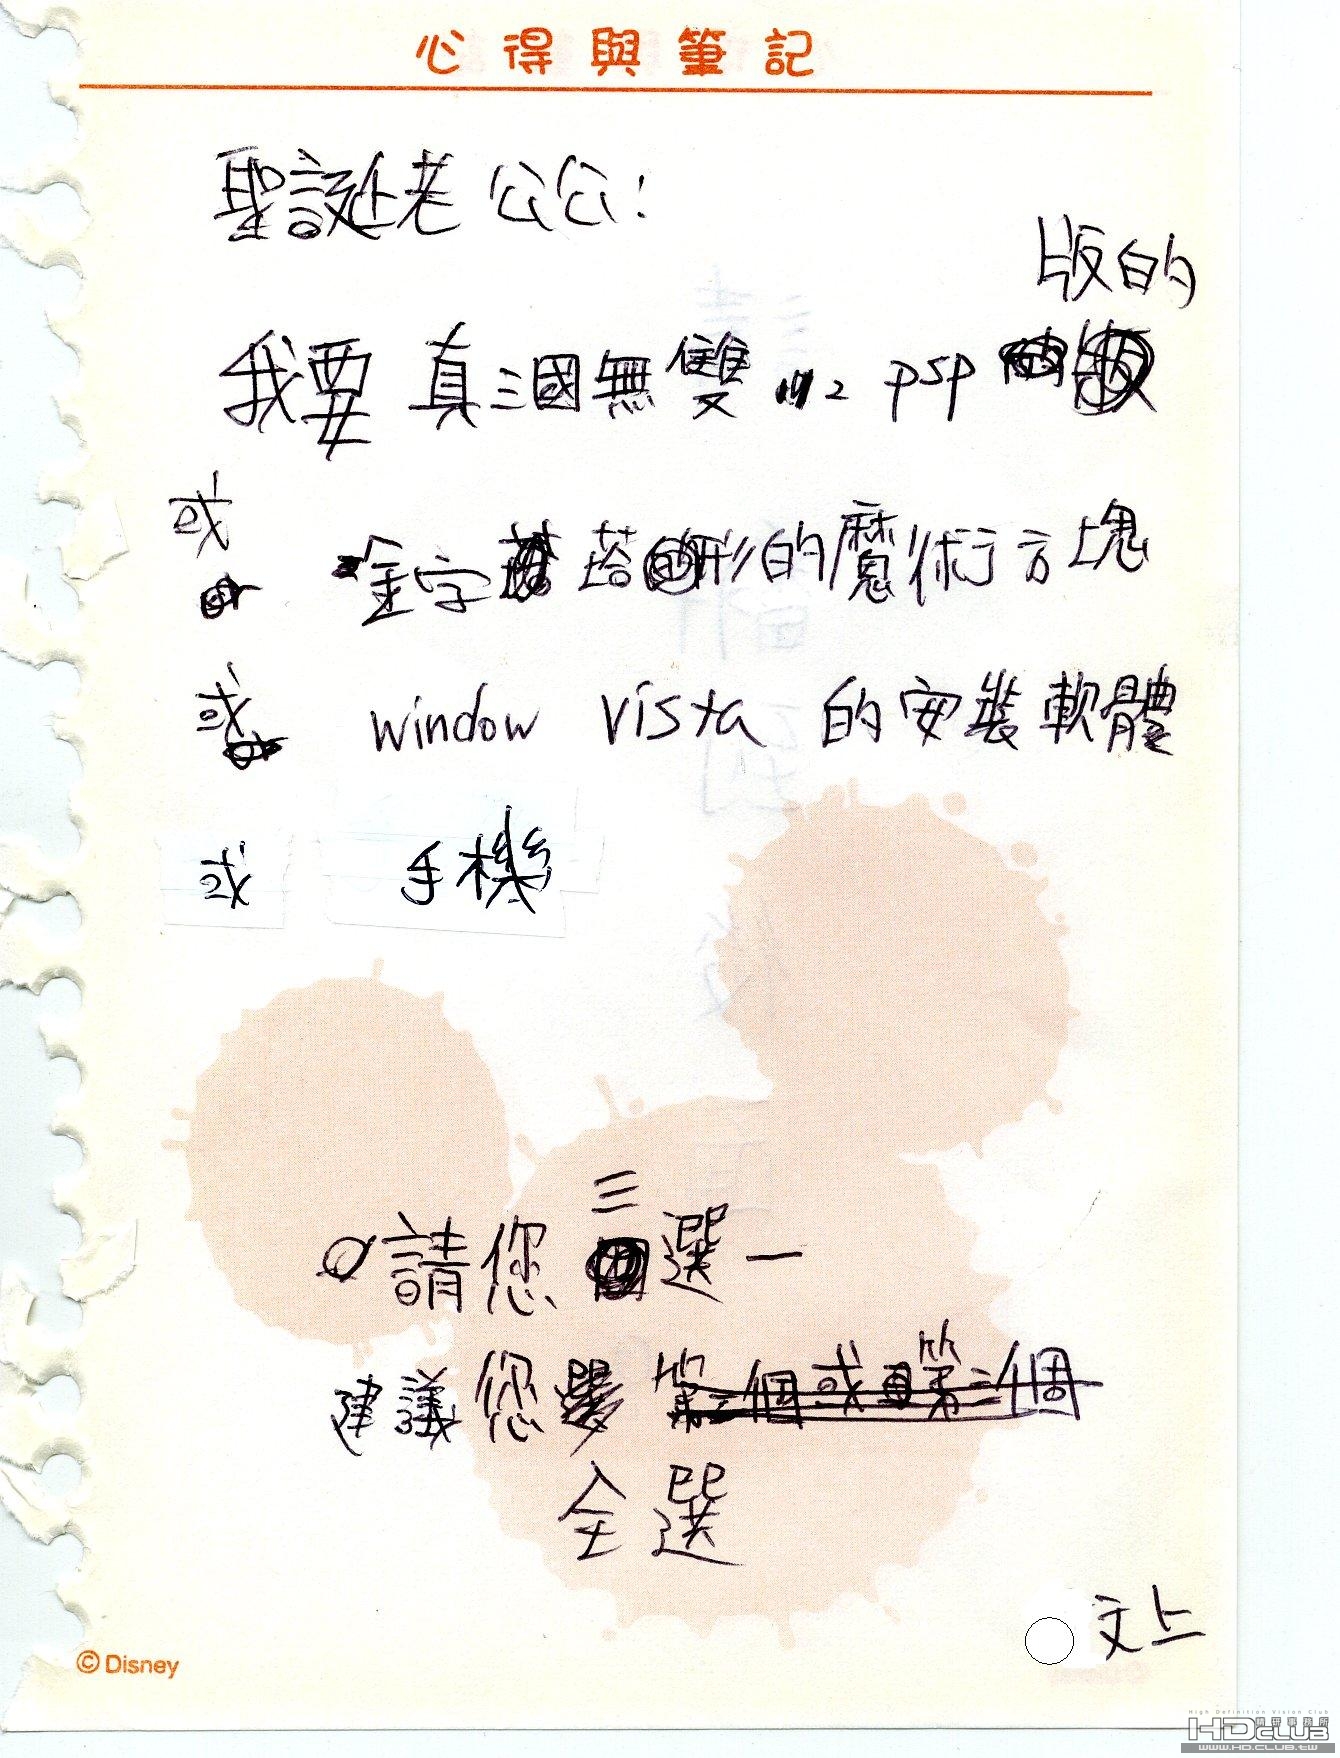 心得與筆記
聖誕老公公:
版的
我要 真三國無雙 2 psp
或 金字塔形的魔術方塊
或 window vista 的安裝軟體
或 手機
三
請您選一
建議您第二個或第三個
全選
文上
© Disney
High Definition Vision Club
HD CLUB
WWW.HD.CLUB.TW